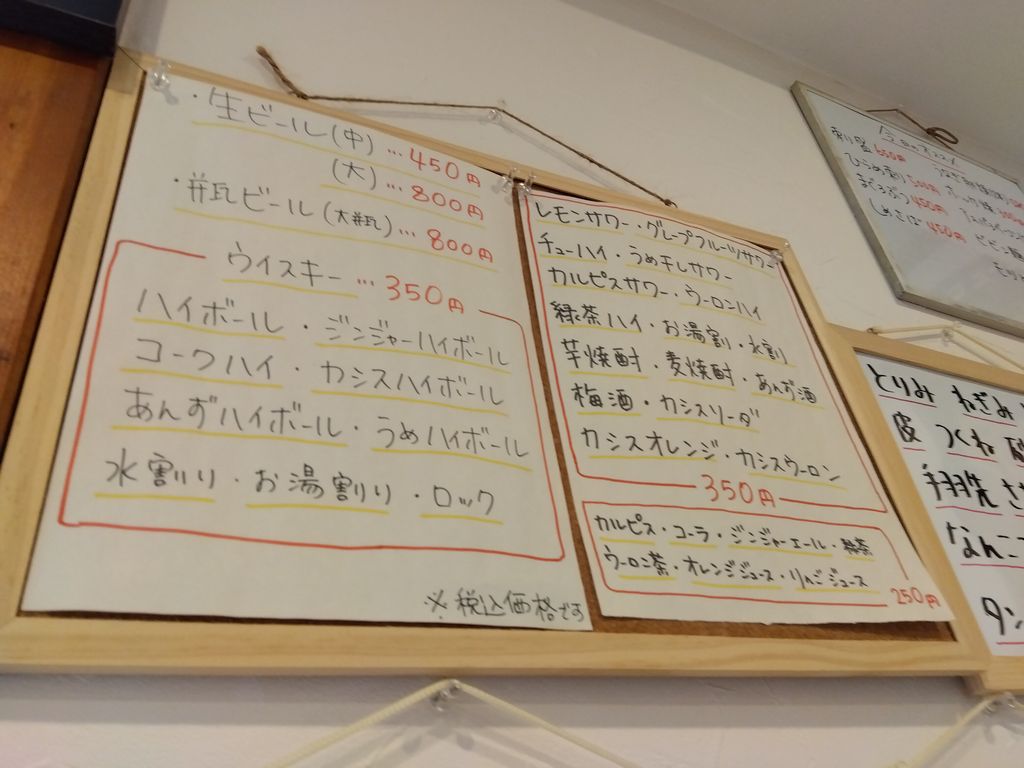 ・生ビール(中)…450円
(大)…800円
・瓶ビール(大瓶)…800円
ウイスキー…350円
ハイボール・ジンジャーハイボール
コークハイ・カシスハイボール
あんずハイボール・うめハイボール
水割り・お湯割り・ロック
※税込価格です
レモンサワー・グレープフルーツサワー
チューハイ・うめ干しサワー
カルピスサワー・ウーロンハイ
緑茶ハイ・お湯割り・水割り
芋焼酎・麦焼酎・あんず酒
梅酒・カシスソーダ
カシスオレンジ・カシスウーロン
350円
カルピス・コーラ・ジンジャーエール・緑茶
ウーロン茶・オレンジジュース・りんごジュース
250円
刺し盛 650円
ひらめ刺し 500円
まぐろぶつ 450円
しめさば 450円
とりみ ねぎみ
皮 つくね
手羽先
なんこつ
タン